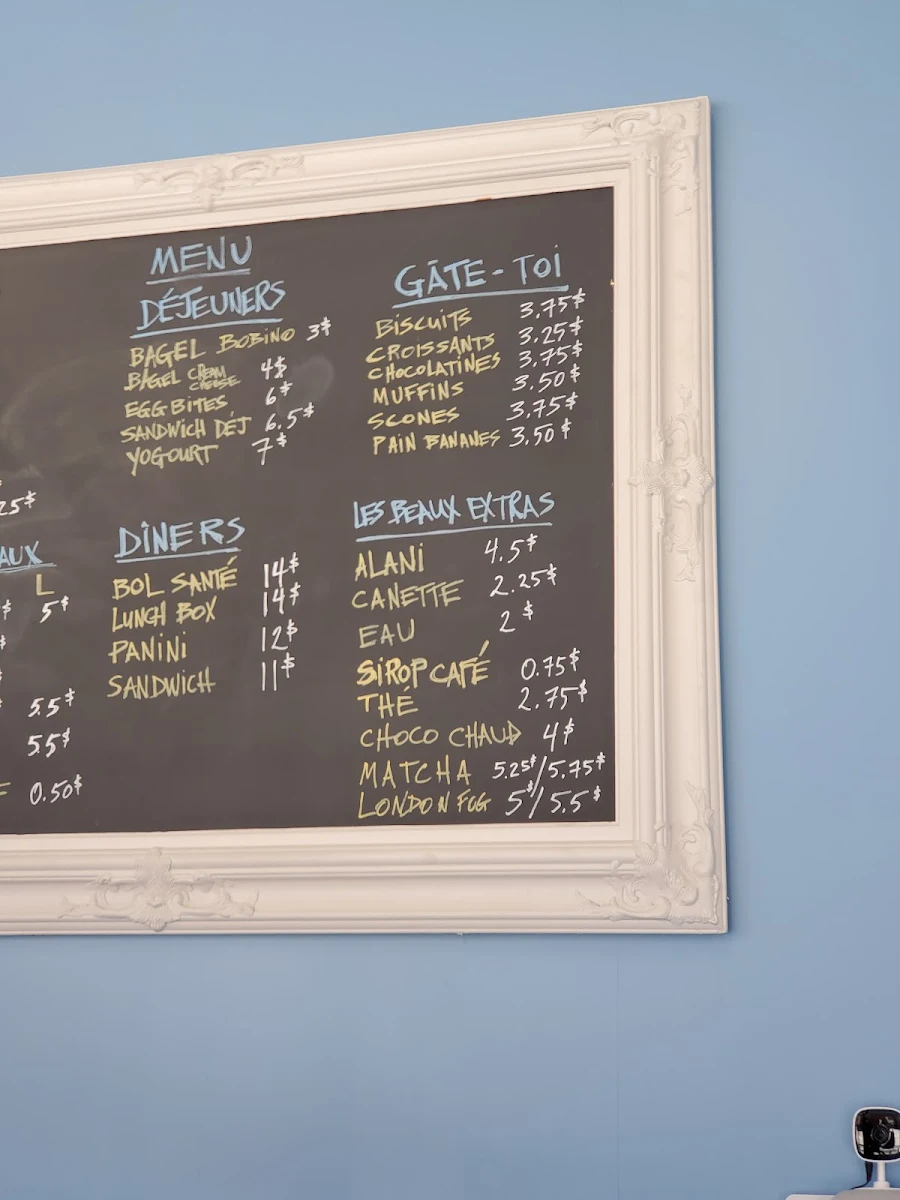 MENU
DÉJEUNERS
BAGEL BOBINO 3$
BAGEL CREAM CHEESE 4$
EGG BITES 6$
SANDWICH DÉJ 6.5$
YOGOURT 7$
GÂTE-TOI
BISCUITS 3.75$
CROISSANTS 3.25$
CHOCOLATINES 3.75$
MUFFINS 3.50$
SCONES 3.75$
PAIN BANANES 3.50$
25$
AUX
L
$ 5$
5.5$
5.5$
0.50$
DÎNERS
BOL SANTÉ 14$
LUNCH BOX 14$
PANINI 12$
SANDWICH 11$
LES BEAUX EXTRAS
ALANI 4.5$
CANETTE 2.25$
EAU 2$
SIROP CAFÉ 0.75$
THÉ 2.75$
CHOCO CHAUD 4$
MATCHA 5.25$/5.75$
LONDON FOG 5$/5.5$